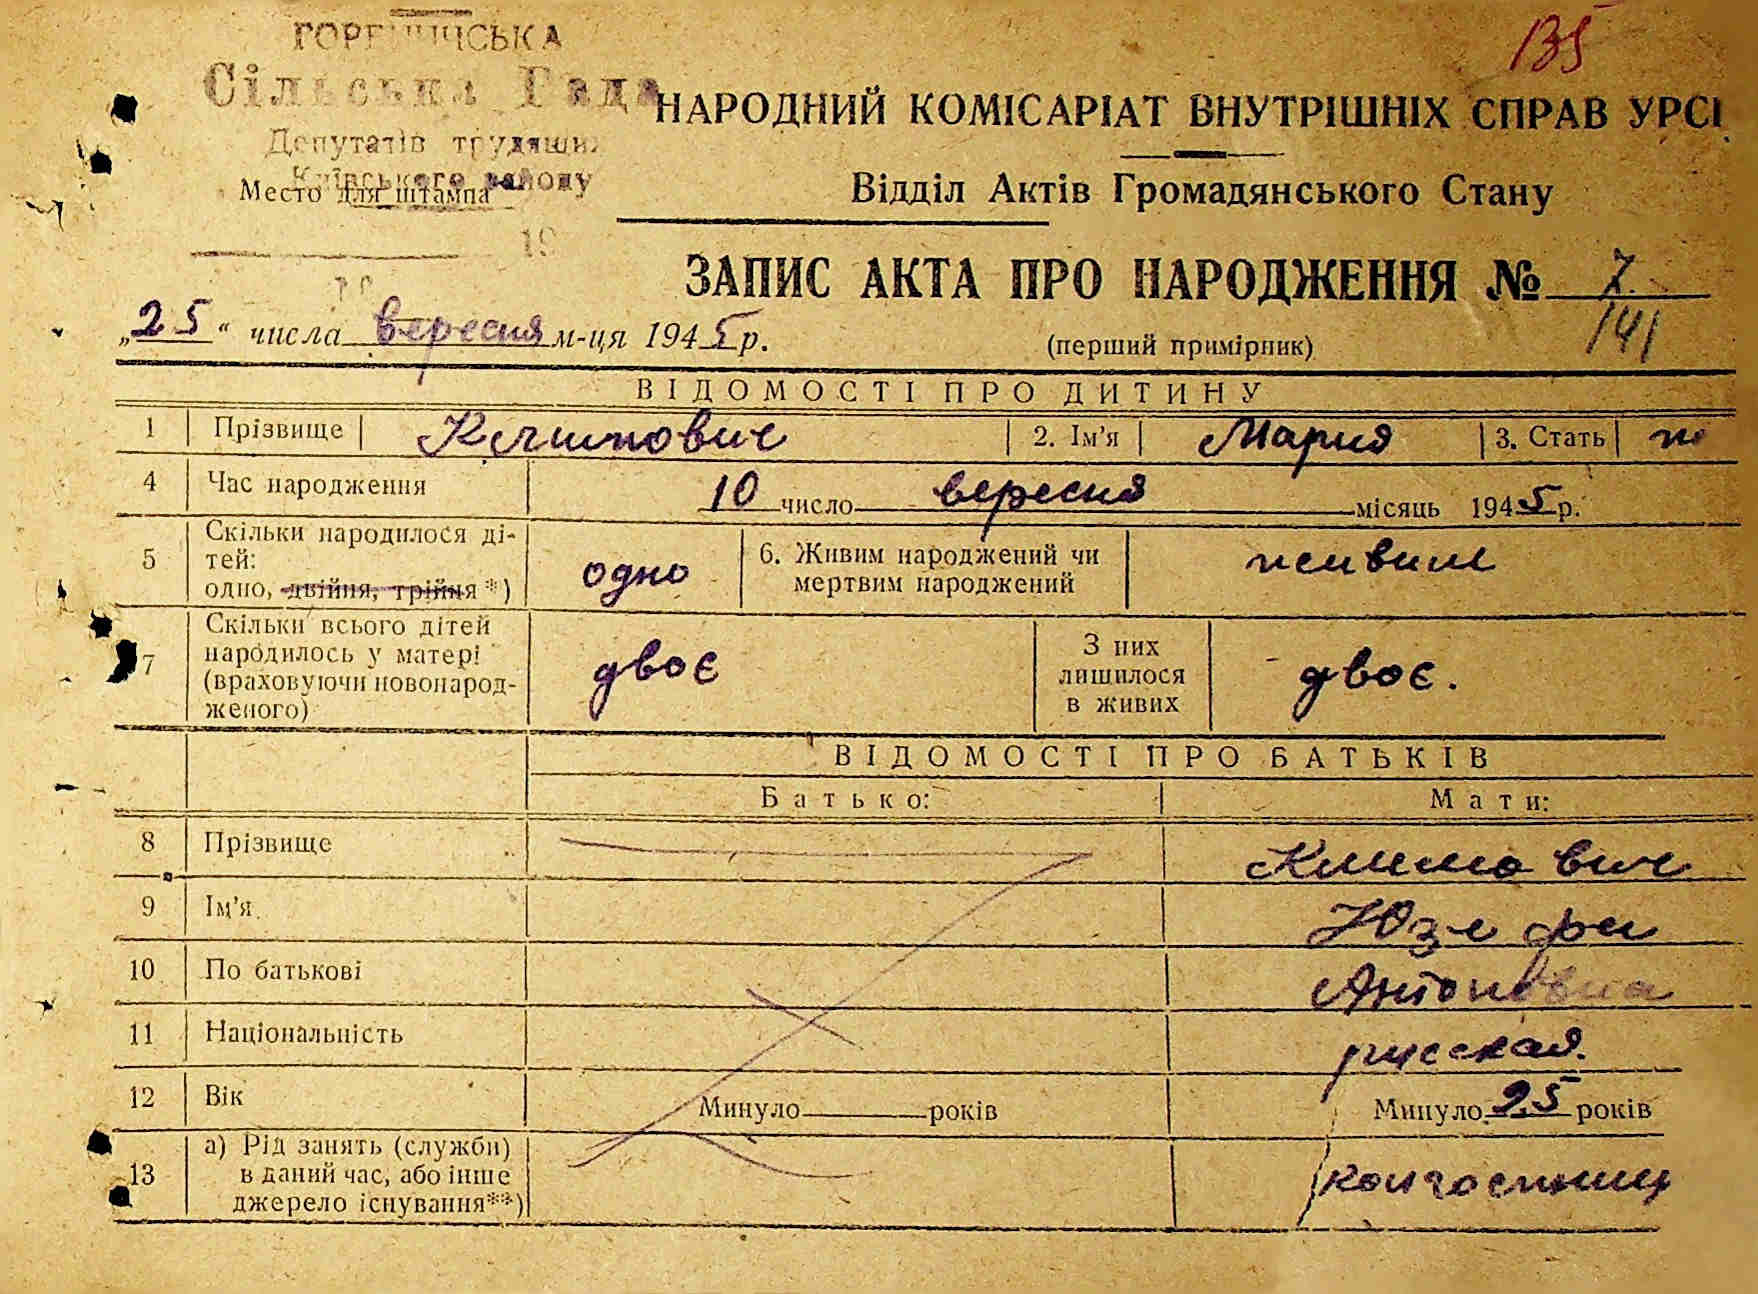 135
ГОРЕНИЧСЬКА
Сільська Рада
Депутатів трудящих
Київського району
Место для штампа
19
НАРОДНИЙ КОМІСАРІАТ ВНУТРІШНІХ СПРАВ УРСР
Відділ Актів Громадянського Стану
ЗАПИС АКТА ПРО НАРОДЖЕННЯ № 7.
„25“ числа вересня м-ця 1945 р.
(перший примірник)
141
ВІДОМОСТІ ПРО ДИТИНУ
1 Прізвище Климович 2. Ім'я Мария 3. Стать
4 Час народження 10 число вересня місяць 1945 р.
5 Скільки народилося ді-
тей:
одно, двійня, трійня *) одно
6. Живим народжений чи
мертвим народжений живим
7 Скільки всього дітей
народилось у матері
(враховуючи новонарод-
женого) двоє
З них
лишилося
в живих двоє.
ВІДОМОСТІ ПРО БАТЬКІВ
Батько: Мати:
8 Прізвище Климович
9 Ім'я Юзефа
10 По батькові Антоновна
11 Національність русская.
12 Вік Минуло років Минуло 25 років
13 а) Рід занять (служби)
в даний час, або інше
джерело існування**)